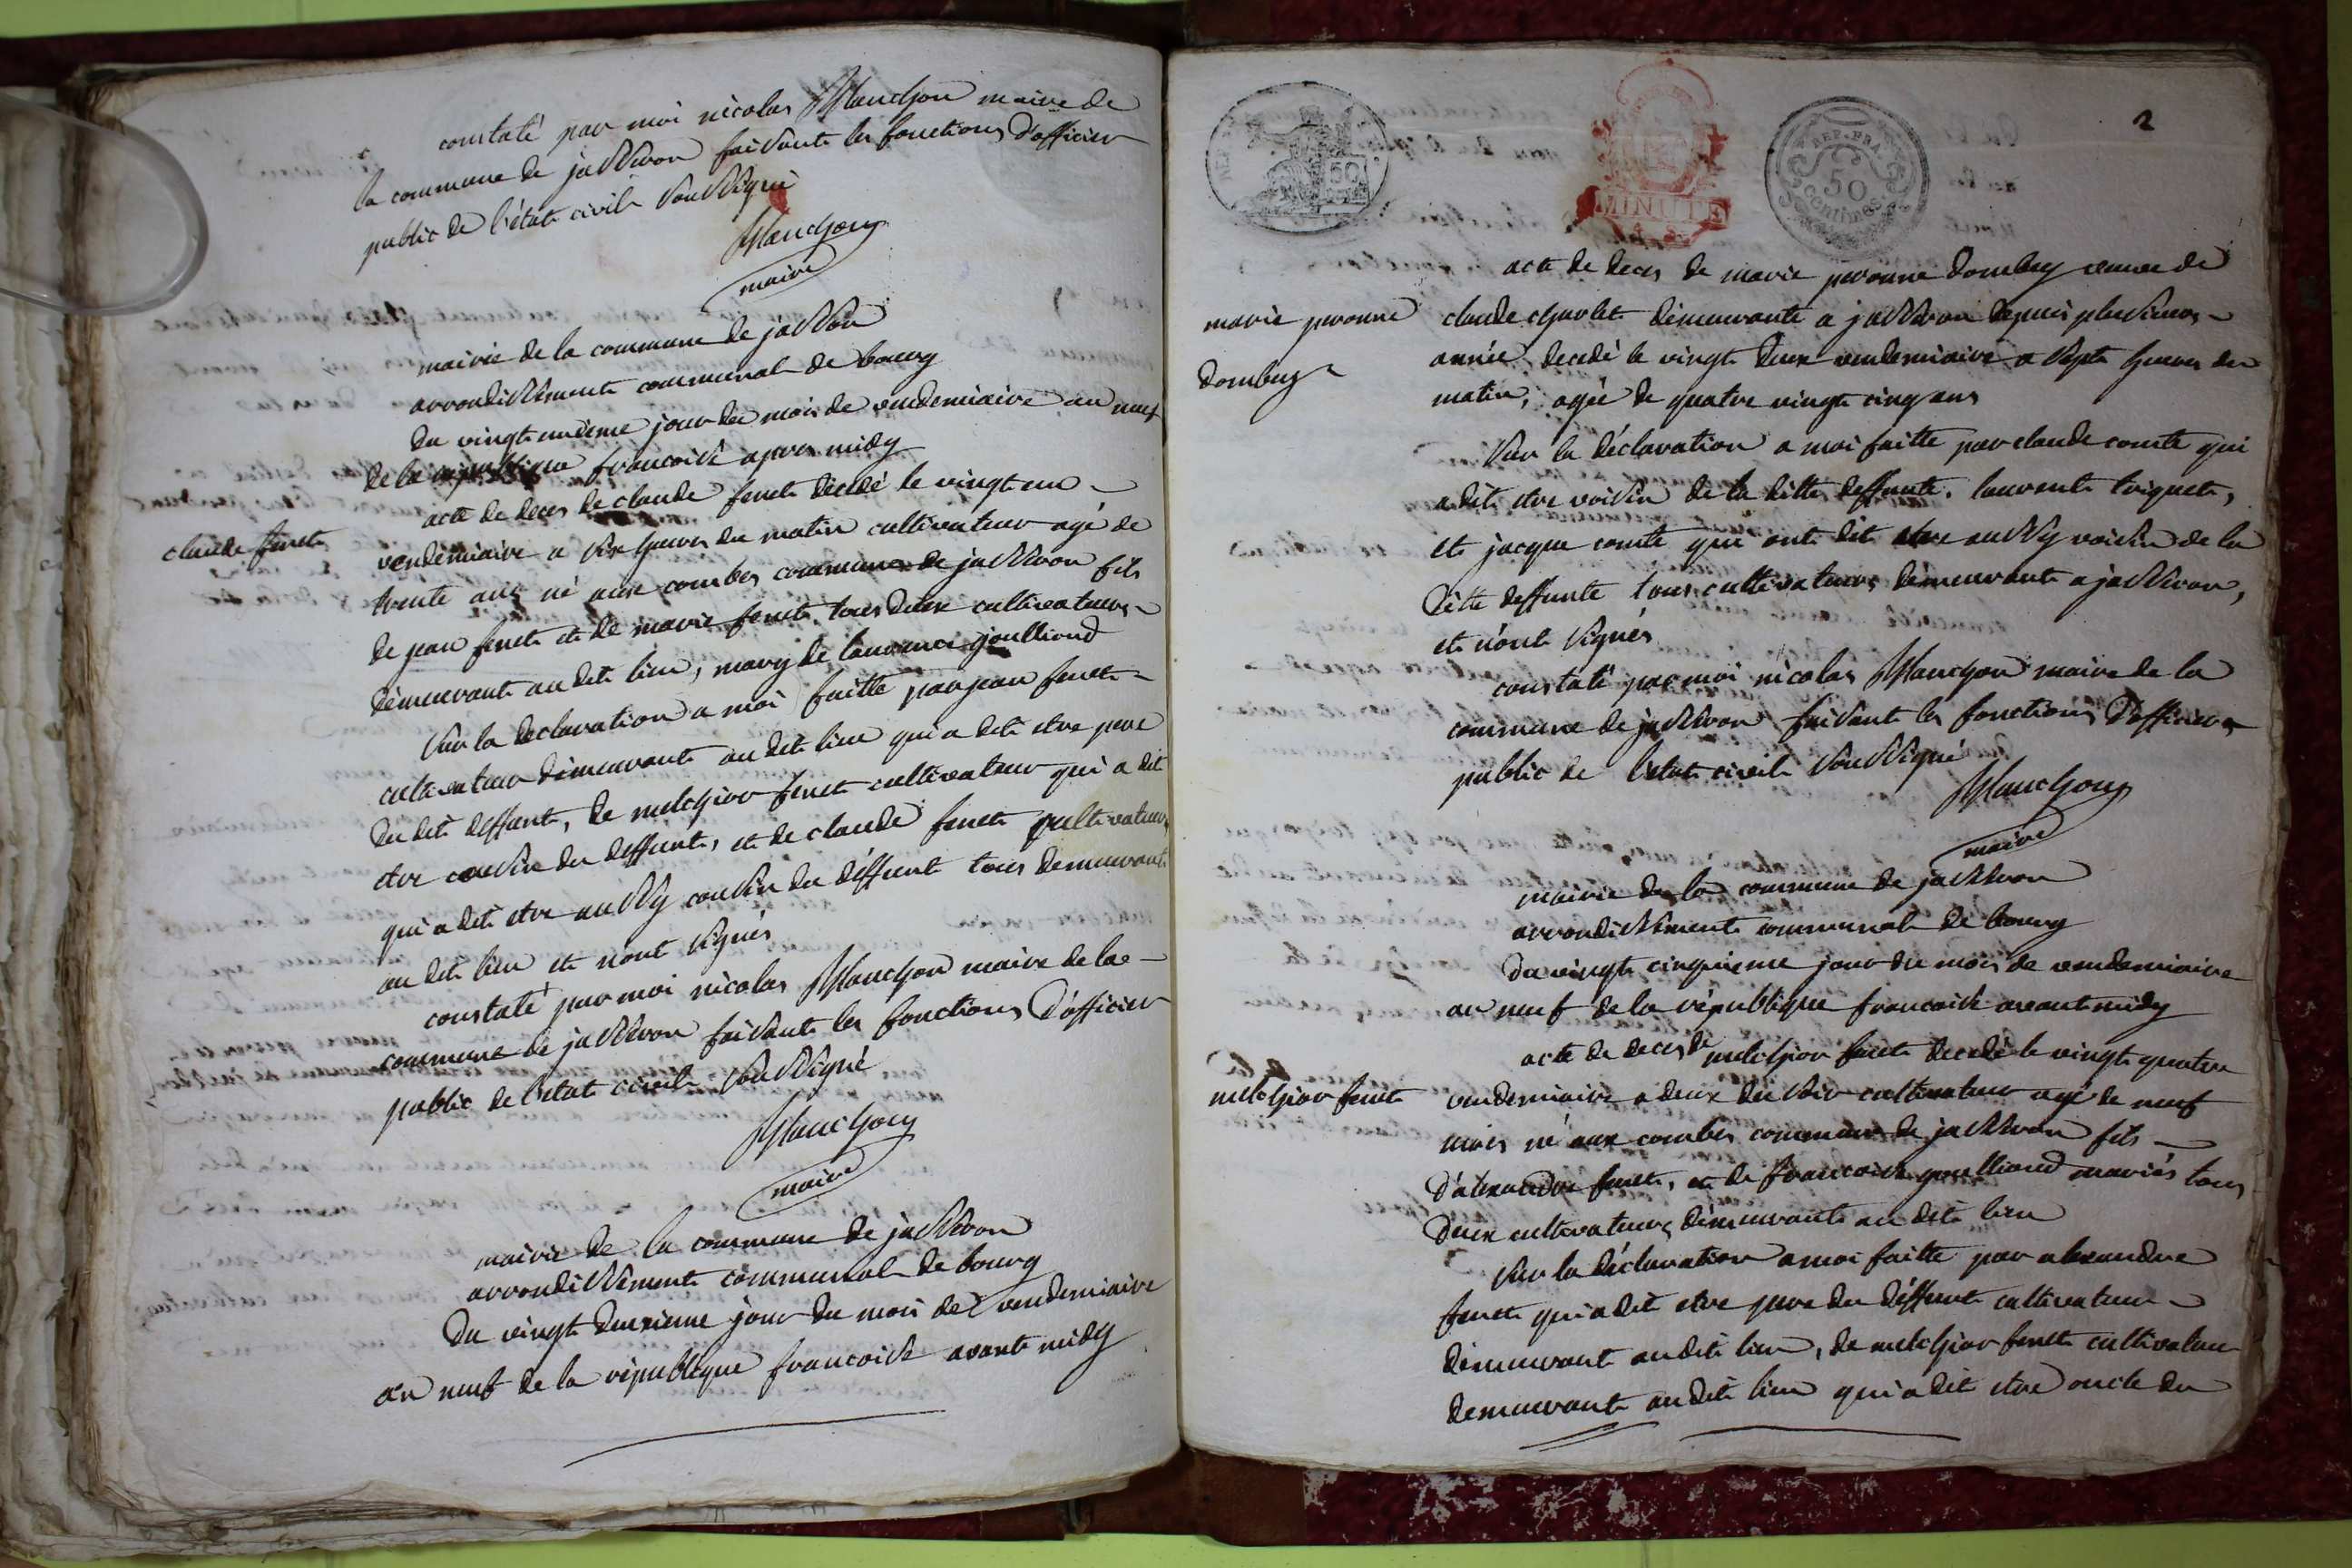 constaté par moi nicolas Manchon maire de
la commune de jasseron faisante les fonctions d'officier
public de l'état civil soussigné
Manchon
maire
mairie de la commune de jasseron
arrondissement communal de bourg
du vingt unième jour du mois de vendemiaire an neuf
de la republique francoise apres midy
claude feret
acte de deces de claude feret décédé le vingt un
vendemiaire a six heures du matin cultivateur agé de
trente ans né aux combes commune de jasseron fils
de jean feret et de marie feret tous deux cultivateurs
demeurants au dit lieu, mary de laurence goulliond
sur la declaration a moi faitte par jean feret
cultivateur demeurant au dit lieu qui a dit etre pere
du dit deffunt, de melchior feret cultivateur qui a dit
etre cousin du deffunt, et de claude feret cultivateur
qui a dit etre aussy cousin du déffunt tous demeurants
au dit lieu et n'ont signés
constaté par moi nicolas Manchon maire de la
commune de jasseron faisante les fonctions d'officier
public de l'etat civil soussigné
Manchon
maire
mairie de la commune de jasseron
arrondissement communal de bourg
du vingt deuxieme jour du mois de vendemiaire
an neuf de la république francoise avant midy
2
50
MINUTE
REP. FRA.
50
centimes
acte de deces de marie peronne dombey veuve de
marie peronne
dombey
claude charlet demeurante a jasseron depuis plusieurs
année decedé le vingt deux vendemiaire a sept heures du
matin, agée de quatre vingt cinq ans
sur la déclaration a moi faitte par claude comte qui
a dit etre voisin de la ditte deffunte, laurent triquet,
et jacque comte qui ont dit etre aussy voisin de la
ditte deffunte tous cultivateurs demeurants a jasseron,
et n'ont signés
constaté par moi nicolas Manchon maire de la
commune de jasseron faisante les fonctions d'officier
public de l'etat civil soussigné
Manchon
maire
mairie de la commune de jasseron
arrondissement communal de bourg
du vingt cinquieme jour du mois de vendemiaire
an neuf de la république francoise avant midy
acte de deces de melchior feret decedé le vingt quatre
melchior feret
vendemiaire a deux du soir cultivateur agé de neuf
mois né aux combes commune de jasseron fils
d'alexandre feret, et de francoise goulliond mariés tous
deux cultivateurs demeurants au dit lieu
sur la déclaration a moi faitte par alexandre
feret qui a dit etre pere du déffunt cultivateur
demeurant au dit lieu, de melchior feret cultivateur
demeurant au dit lieu qui a dit etre oncle du